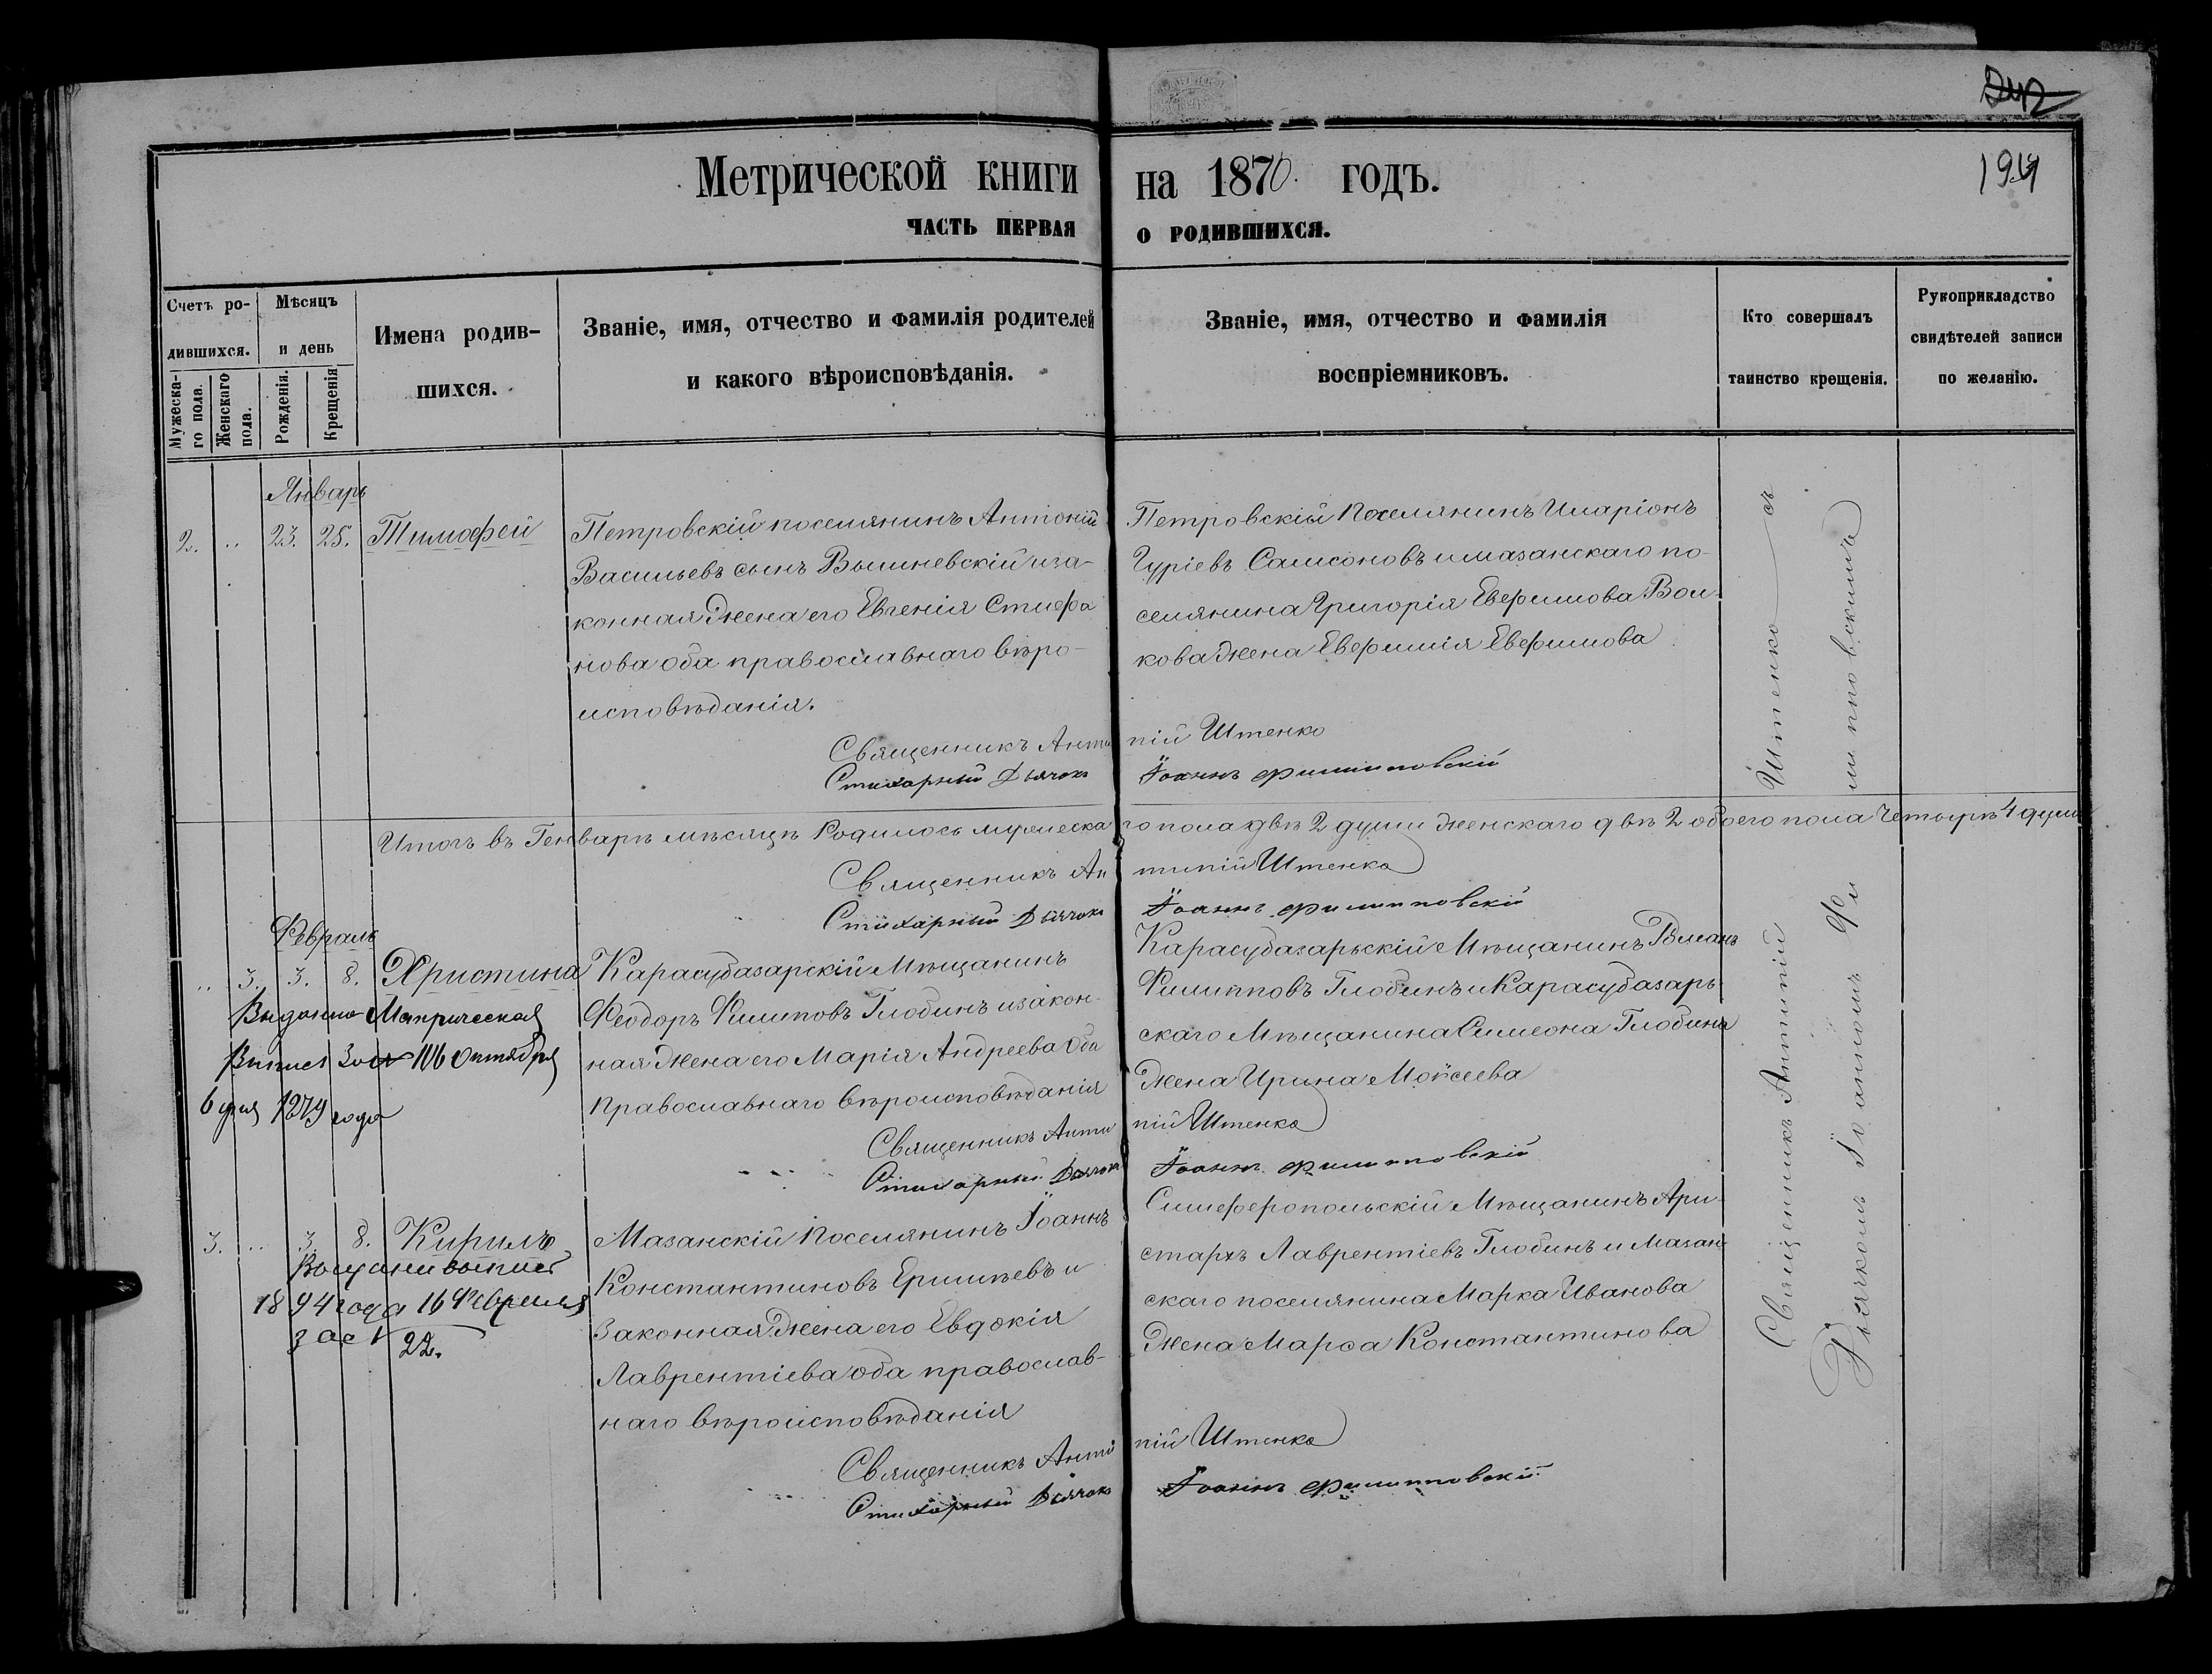 Метрической книги на 1870 годъ.
194
ЧАСТЬ ПЕРВАЯ О РОДИВШИХСЯ.
Счетъ родившихся.
Мужескаго пола.
Женскаго пола.
Мѣсяцъ и день
Рожденія.
Крещенія
Имена родившихся.
Званіе, имя, отчество и фамилія родителей
и какого вѣроисповѣданія.
Званіе, имя, отчество и фамилія
воспріемниковъ.
Кто совершалъ
таинство крещенія.
Рукоприкладство
свидѣтелей записи
по желанію.
Январь
2. .. 23. 25. Тимофей
Петровскій поселянинъ Антоній
Васильевъ сынъ Вышневскій иза-
конная жена его Евгенія Стефа
нова оба православнаго вѣро-
исповѣданія.
Петровскій Поселянинъ Иларіонъ
Гуріевъ Самсоновъ и мазанскаго по-
селянина Григорія Евфимова Вол-
кова жена Евфимія Евфимова
Священникъ Антипій Штенко
Стихарный Дьячокъ Іоаннъ Филипповскій
Итогъ въ Генварѣ мѣсяцѣ Родилось мужескаго пола двѣ 2 души женскаго двѣ 2 обоего пола Четырѣ 4 души
Священникъ Антипій Штенко
Стихарный Дьячокъ Іоаннъ Филипповскій
Февраль
.. 3. 3. 8. Христина
Выданно Метрическая
Выпись 106 Октября
6 дня 1879 года
Карасубазарскій Мѣщанинъ
Феодоръ Филиповъ Глобинъ изакон-
ная жена его Марія Андреева оба
Православнаго вѣроисповѣданія
Карасубазарьскій Мѣщанинъ
Филипповъ Глобинъ и Карасубазарь-
скаго Мѣщанина Симеона Глобина
жена Ирина Мойсеева
Священникъ Антипій Штенко
Стихарный Дьячокъ Іоаннъ Филипповскій
3. .. 3. 8. Кирилъ
выпись
1894 года 16 Февраля
за № 22.
Мазанскій Поселянинъ Іоаннъ
Константиновъ и
Законная жена его Евдокія
Лаврентіева оба православ-
наго вѣроисповѣданія
Симферопольскій Мѣщанинъ Ари-
стархъ Лаврентіевъ Глобинъ и Мазан-
скаго поселянина Марка Иванова
жена Марѳа Константинова
Священникъ Антипій Штенко
Стихарный Дьячокъ Іоаннъ Филипповскій
Священникъ Антипій Штенко съ
Дьячкомъ Іоанномъ Филипповскимъ